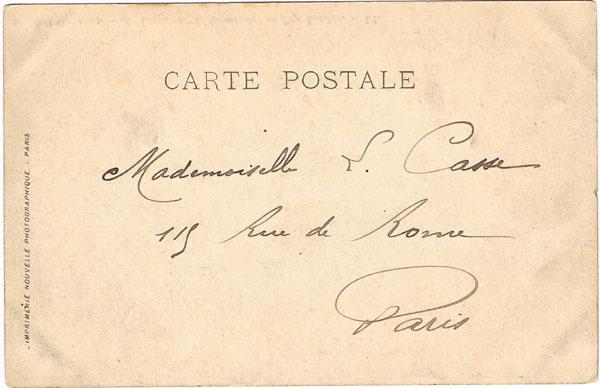 CARTE POSTALE
Mademoiselle L. Casse
115 Rue de Rome
Paris
IMPRIMERIE NOUVELLE PHOTOGRAPHIQUE. - PARIS